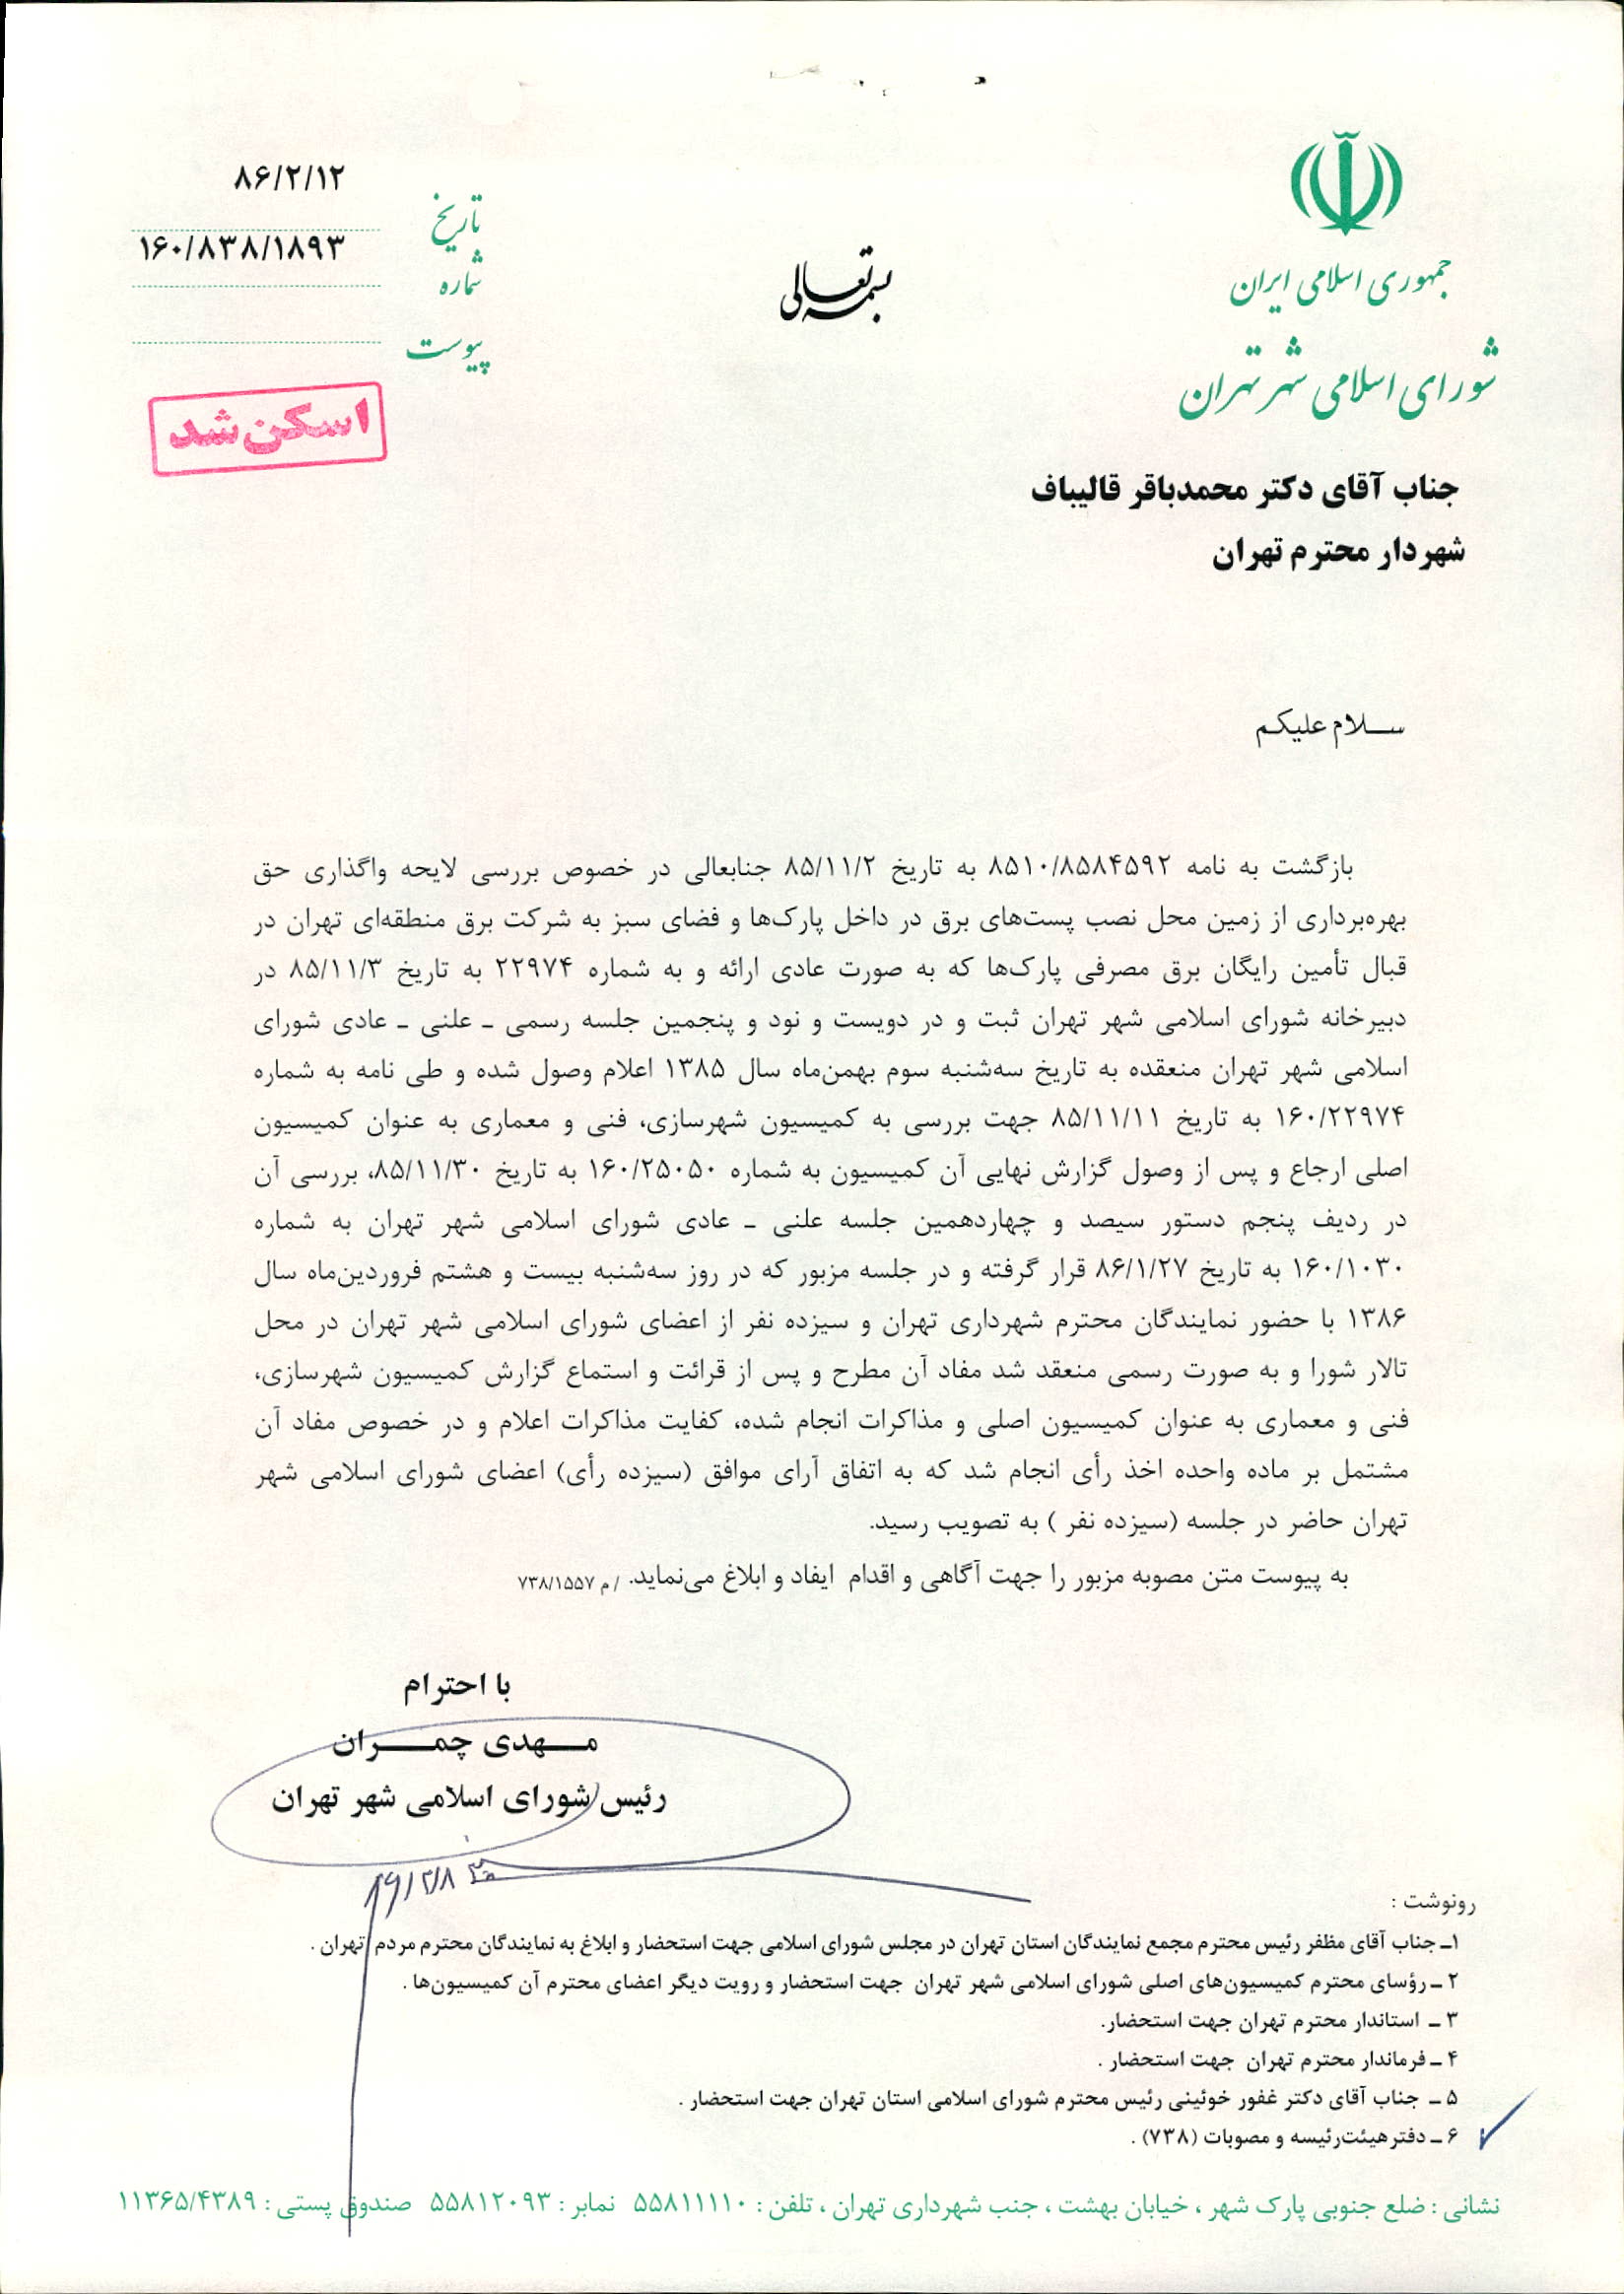 جمهوری اسلامی ایران
شورای اسلامی شهر تهران
بسمه تعالی
تاریخ ۸۶/۲/۱۲
شماره ۱۶۰/۸۳۸/۱۸۹۳
پیوست
اسکن شد
جناب آقای دکتر محمدباقر قالیباف
شهردار محترم تهران
سـلام علیکم
بازگشت به نامه ۸۵۱۰/۸۵۸۴۵۹۲ به تاریخ ۸۵/۱۱/۲ جنابعالی در خصوص بررسی لایحه واگذاری حق
بهره‌برداری از زمین محل نصب پست‌های برق در داخل پارک‌ها و فضای سبز به شرکت برق منطقه‌ای تهران در
قبال تأمین رایگان برق مصرفی پارک‌ها که به صورت عادی ارائه و به شماره ۲۲۹۷۴ به تاریخ ۸۵/۱۱/۳ در
دبیرخانه شورای اسلامی شهر تهران ثبت و در دویست و نود و پنجمین جلسه رسمی ـ علنی ـ عادی شورای
اسلامی شهر تهران منعقده به تاریخ سه‌شنبه سوم بهمن‌ماه سال ۱۳۸۵ اعلام وصول شده و طی نامه به شماره
۱۶۰/۲۲۹۷۴ به تاریخ ۸۵/۱۱/۱۱ جهت بررسی به کمیسیون شهرسازی، فنی و معماری به عنوان کمیسیون
اصلی ارجاع و پس از وصول گزارش نهایی آن کمیسیون به شماره ۱۶۰/۲۵۰۵۰ به تاریخ ۸۵/۱۱/۳۰، بررسی آن
در ردیف پنجم دستور سیصد و چهاردهمین جلسه علنی ـ عادی شورای اسلامی شهر تهران به شماره
۱۶۰/۱۰۳۰ به تاریخ ۸۶/۱/۲۷ قرار گرفته و در جلسه مزبور که در روز سه‌شنبه بیست و هشتم فروردین‌ماه سال
۱۳۸۶ با حضور نمایندگان محترم شهرداری تهران و سیزده نفر از اعضای شورای اسلامی شهر تهران در محل
تالار شورا و به صورت رسمی منعقد شد مفاد آن مطرح و پس از قرائت و استماع گزارش کمیسیون شهرسازی،
فنی و معماری به عنوان کمیسیون اصلی و مذاکرات انجام شده، کفایت مذاکرات اعلام و در خصوص مفاد آن
مشتمل بر ماده واحده اخذ رأی انجام شد که به اتفاق آرای موافق (سیزده رأی) اعضای شورای اسلامی شهر
تهران حاضر در جلسه (سیزده نفر ) به تصویب رسید.
به پیوست متن مصوبه مزبور را جهت آگاهی و اقدام ایفاد و ابلاغ می‌نماید. /م ۷۳۸/۱۵۵۷
با احترام
مـهدی چمـران
رئیس شورای اسلامی شهر تهران
۸۶/۲/۸
رونوشت :
۱ـ جناب آقای مظفر رئیس محترم مجمع نمایندگان استان تهران در مجلس شورای اسلامی جهت استحضار و ابلاغ به نمایندگان محترم مردم تهران .
۲ ـ رؤسای محترم کمیسیون‌های اصلی شورای اسلامی شهر تهران جهت استحضار و رویت دیگر اعضای محترم آن کمیسیون‌ها .
۳ ـ استاندار محترم تهران جهت استحضار.
۴ ـ فرماندار محترم تهران جهت استحضار .
۵ ـ جناب آقای دکتر غفور خوئینی رئیس محترم شورای اسلامی استان تهران جهت استحضار .
۶ ـ دفتر هیئت‌رئیسه و مصوبات (۷۳۸) .
نشانی : ضلع جنوبی پارک شهر ، خیابان بهشت ، جنب شهرداری تهران ، تلفن : ۵۵۸۱۱۱۱۰ نمابر : ۵۵۸۱۲۰۹۳ صندوق پستی : ۱۱۳۶۵/۴۳۸۹